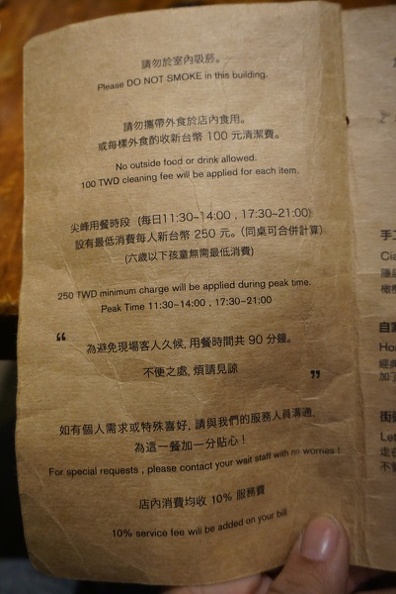 請勿於室內吸菸。
Please DO NOT SMOKE in this building.
請勿攜帶外食於店內食用。
或每樣外食酌收新台幣 100 元清潔費。
No outside food or drink allowed.
100 TWD cleaning fee will be applied for each item.
尖峰用餐時段 (每日11:30-14:00 , 17:30-21:00)
設有最低消費每人新台幣 250 元。(同桌可合併計算)
(六歲以下孩童無需最低消費)
250 TWD minimum charge will be applied during peak time.
Peak Time 11:30-14:00 , 17:30-21:00
“
為避免現場客人久候, 用餐時間共 90 分鐘。
不便之處, 煩請見諒
”
如有個人需求或特殊喜好, 請與我們的服務人員溝通,
為這一餐加一分貼心！
For special requests , please contact your wait staff with no worries !
店內消費均收 10% 服務費
10% service fee will be added on your bill
手工
Cia
自家
Ho
經典
加了
街
Let
走
不